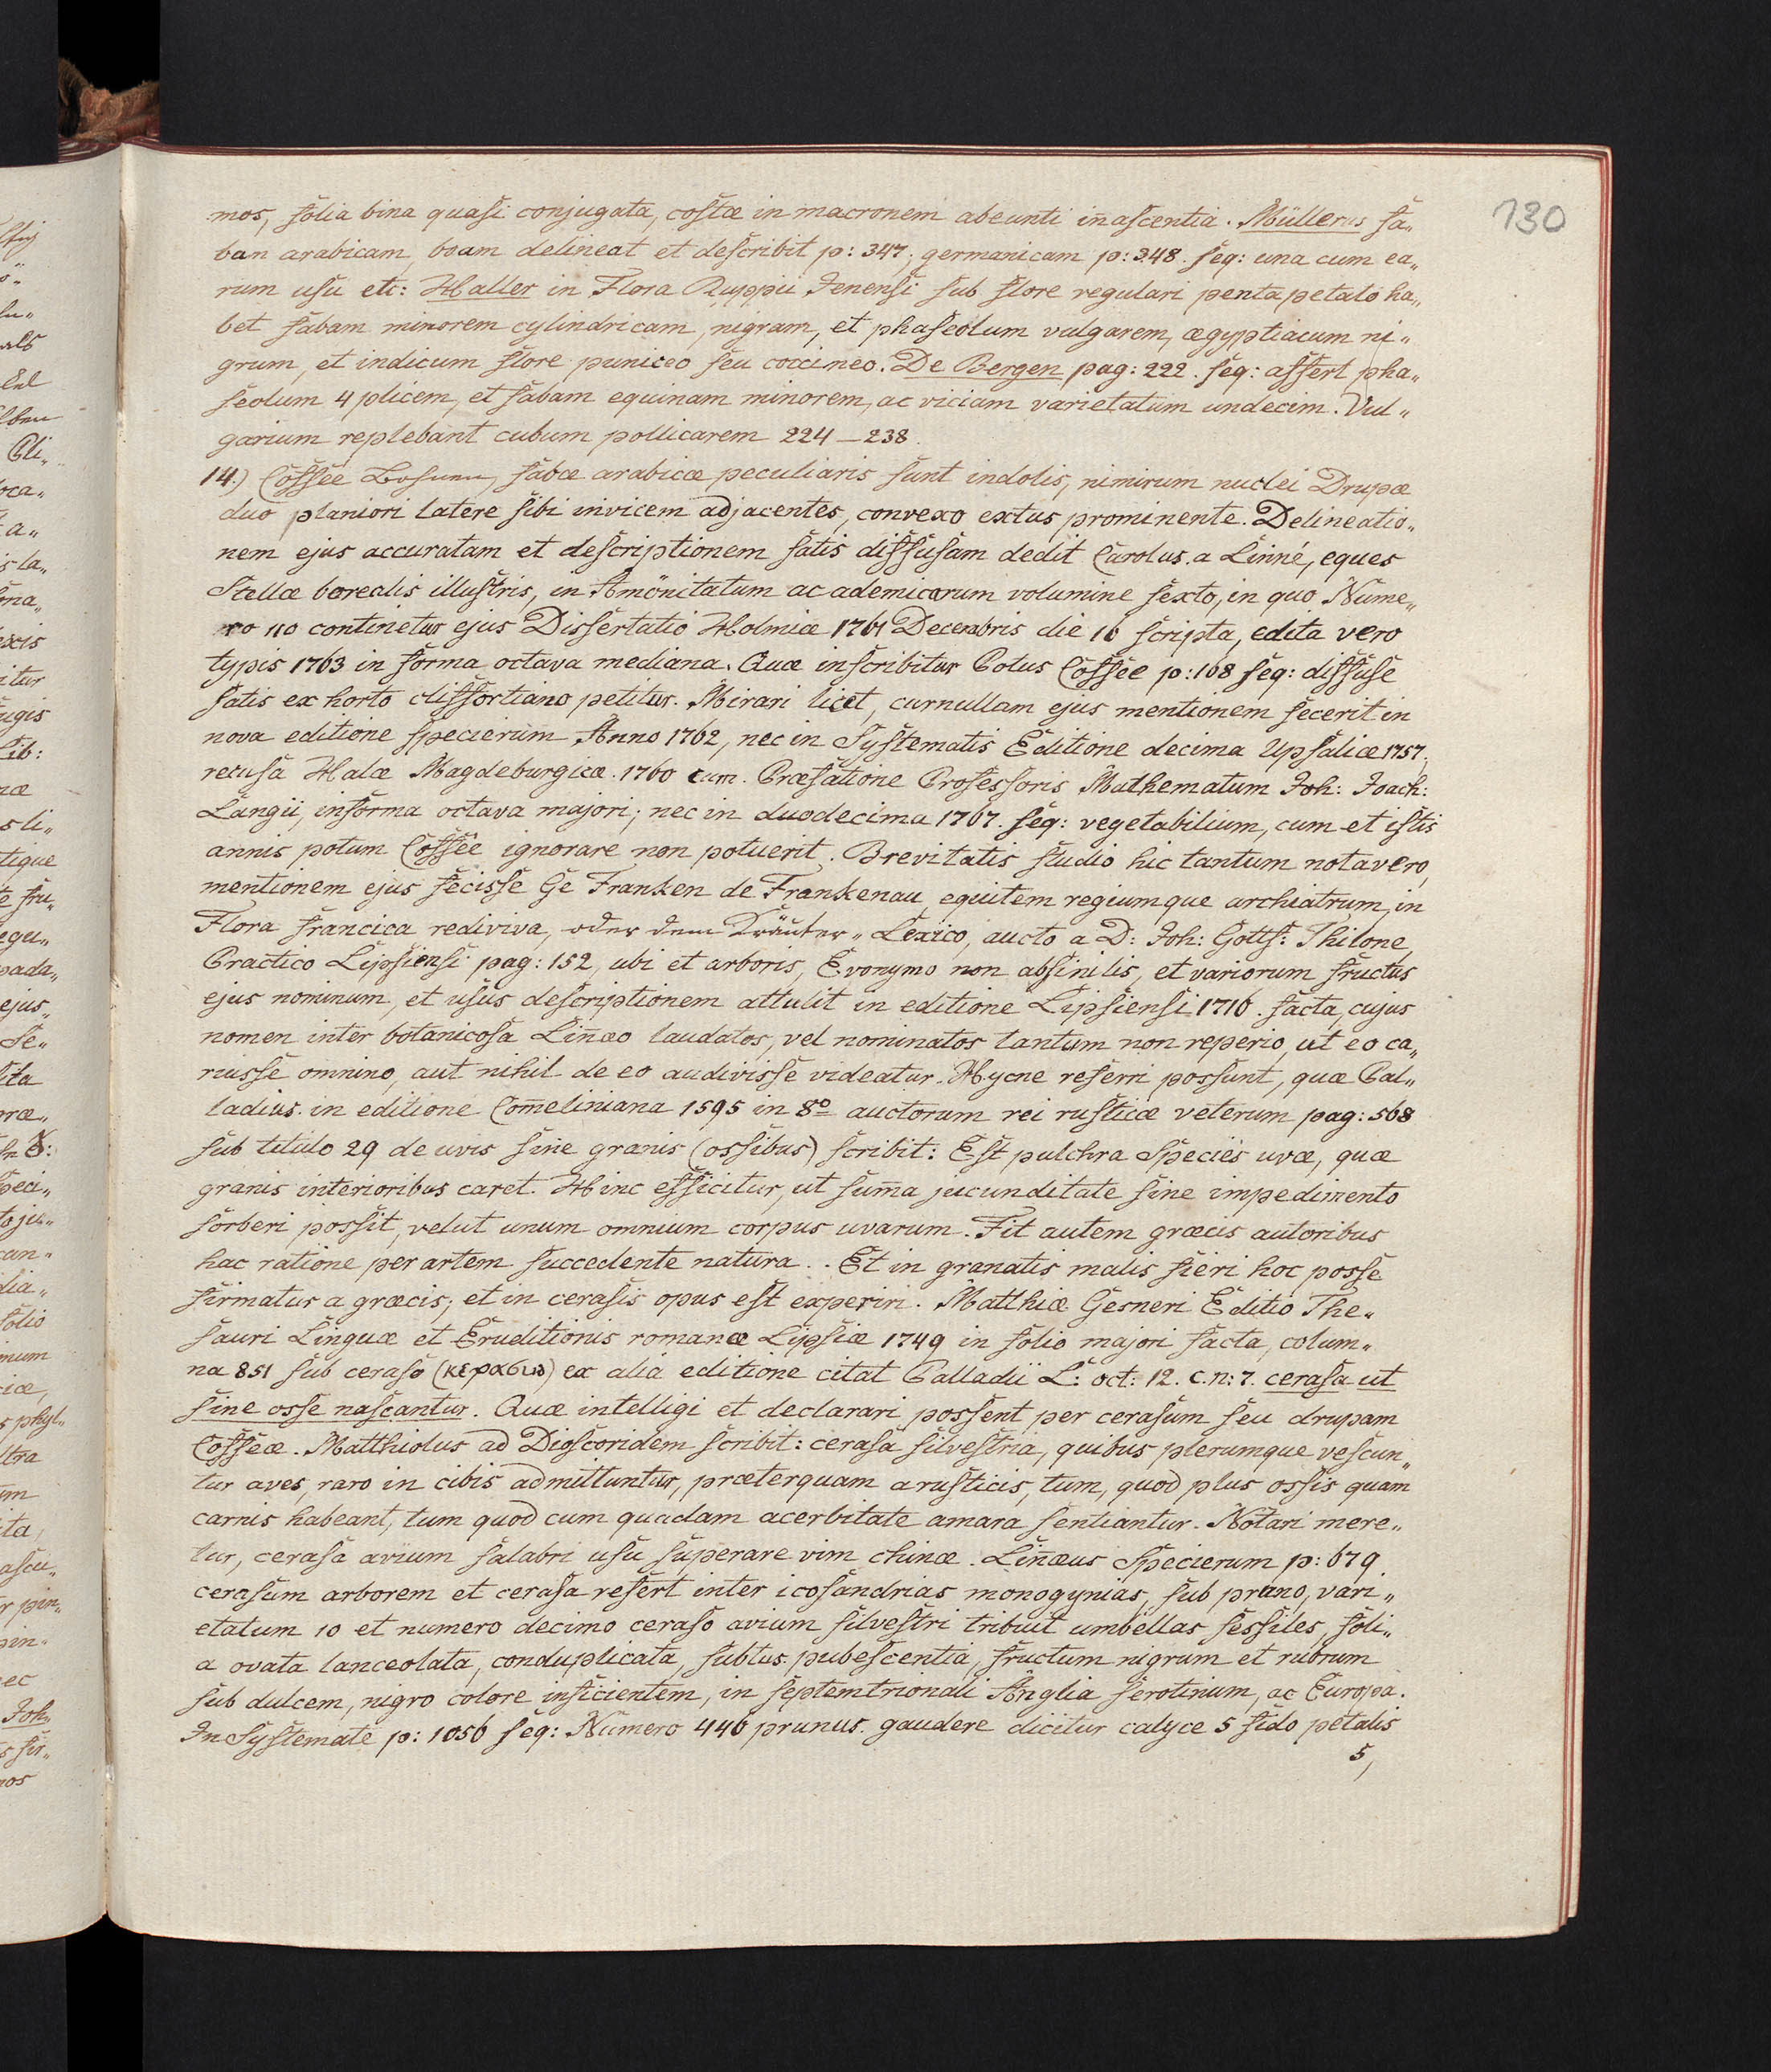 130
mos, folia bina quasi conjugata, costæ in macronem abeunti in̄ascentia. Müllerus fa„
ban arabicam, boam delineat et describit p: 347; germanicam p: 348. seq: una cum ea„
rum usu etc: Haller in Flora Ruppii Jenensi sub flore regulari pentapetalo ha„
bet fabam minorem cylindricam, nigram, et phaseolum vulgarem, ægyptiacum ni„
grum, et indicum flore puniceo seu coccineo. De Bergen pag: 222. seq: affert pha„
seolum 4 plicem, et fabam equinam minorem, ac viciam varietatum undecim. Vul„
garium replebant cubum pollicarem 224 — 238.
14.) Coffée Bohnen, fabæ arabicæ peculiaris sunt indolis, nimirum nuclei Drupæ
duo planiori latere sibi invicem adjacentes, convexo extus prominente. Delineatio„
nem ejus accuratam et descriptionem satis diffusam dedit Carolus. a Linné, eques
Stellæ borealis illustris, in Amönitatum academicarum volumine sexto, in quo Nume„
ro 110 continetur ejus Dissertatio Holmiæ 1761 Decembris die 16 scripta, edita vero
typis 1763 in forma octava mediana. Quæ inscribitur Potus Coffée p: 168 seq: diffuse
satis ex horto cliffortiano petitur. Mirari licet, cur nullam ejus mentionem fecerit in
nova editione specierum Anno 1762, nec in Systematis Editione decima Upsaliæ 1757,
recusa Halæ Magdeburgicæ. 1760 cum. Præfatione Professoris Mathematum Joh: Joach:
Langii, in forma octava majori; nec in duodecima 1767. seq: vegetabilium, cum et istis
annis potum Coffée ignorare non potuerit. Brevitatis studio hic tantum notavero,
mentionem ejus fecisse Ge Franken de Frankenau, equitem regiumque archiatrum, in
Flora francica rediviva, oder dem Kräuter„ Lexico, aucto a D: Joh: Gottf: Thilone,
Practico Lipsiensi pag: 152, ubi et arboris, Evonymo non absimilis, et variorum fructus
ejus nominum, et usus descriptionem attulit in editione Lipsiensi 1716. facta, cujus
nomen inter botanicos a Lin̄æo laudatos, vel nominatos tantum non reperio, ut eo ca„
ruisse omnino, aut nihil de eo audivisse videatur. Hycne referri possunt, quæ Pal„
ladius. in editione Com̄eliniana 1595 in 8º auctorum rei rusticæ veterum pag: 568
sub titulo 29 de uvis sine granis (ossibus) scribit: Est pulchra Species uvæ, quæ
granis interioribus caret. Hinc efficitur, ut sum̄a jucunditate sine impedimento
sorberi possit, velut unum omnium corpus uvarum. Fit autem græcis autoribus
hac ratione per artem succedente natura.. Et in granatis malis fieri hoc posse
firmatur a græcis; et in cerasis opus est experiri. Matthiæ Gesneri Editio The„
sauri Linguæ et Eruditionis romanæ Lipsiæ 1749 in folio majori facta, colum„
na 851 sub ceraso (κερασιω) ex alia editione citat Palladii L: oct: 12. c. n: 7. cerasa ut
sine osse nascantur. Quæ intelligi et declarari possent per cerasum seu drupam
Coffeæ. Matthiolus ad Dioscoridem scribit: cerasa silvestria, quibus plerumque vescun„
tur aves, raro in cibis admittuntur, præterquam a rusticis, tum, quod plus ossis quam
carnis habeant, tum quod cum quadam acerbitate amara sentiantur. Notari mere„
tur, cerasa avium salabri usu superare vim chinæ. Lin̄æus Specierum p: 679.
cerasum arborem et cerasa refert inter icosandrias monogynias, sub pruno, vari„
etatum 10 et numero decimo ceraso avium silvestri tribuit umbellas sessiles, foli„
a ovata lanceolata, conduplicata, subtus pubescentia, fructum nigrum et rubrum
sub dulcem, nigro colore inficientem, in septemtrionali Anglia serotinum, ac Europa.
In Systemate p: 1056 seq: Numero 446 prunus. gaudere dicitur calyce 5 fido petalis
5,